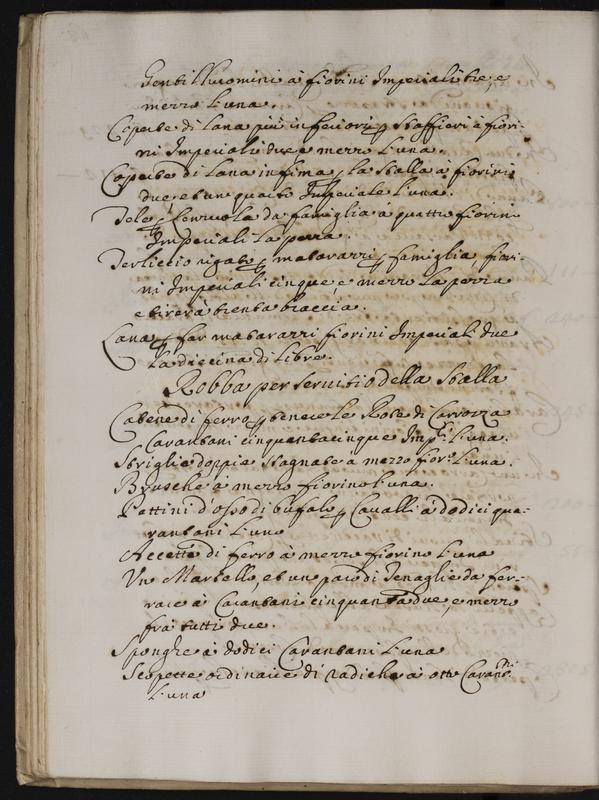 Gentilhuomini à fiorini Imperiali tre, e
mezzo l'una.
Coperte di lana più inferiori p Staffieri à fiori-
ni Imperiali due e mezzo l'una.
Coperte di lana infima p la stalla à fiorini
due et un quarto Imperiale l'una.
Tele p Lenzuola da famiglia à quattro fiorini
Imperiali la pezza.
Terliccio rigato p matarazzi p famiglia, fiori-
ni Imperiali cinque, e mezzo la pezza
e tirerà trenta braccia.
Lana p far matarazzi fiorini Imperiali due
la diecina di libre.
Robba per servitio della Stalla
Catene di ferro p tenere le Rote di Carrozza
Carantani cinquantacinque Imp.li l'una.
Sbriglie doppie stagnate a mezzo fior.o l'una.
Brusche à mezzo fiorino l'una.
Pettini d'osso di bufalo p Cavalli à dodici qua-
rantani l'uno
Accette di ferro à mezzo fiorino l'una
Un Martello, et un paro di Tenaglie da fer-
rare à Carantani cinquanta due, e mezzo
frà tutti due.
Sponghe à dodici Carantani l'una
Scopette ordinarie di radiche à otto Carant.ni
l'una